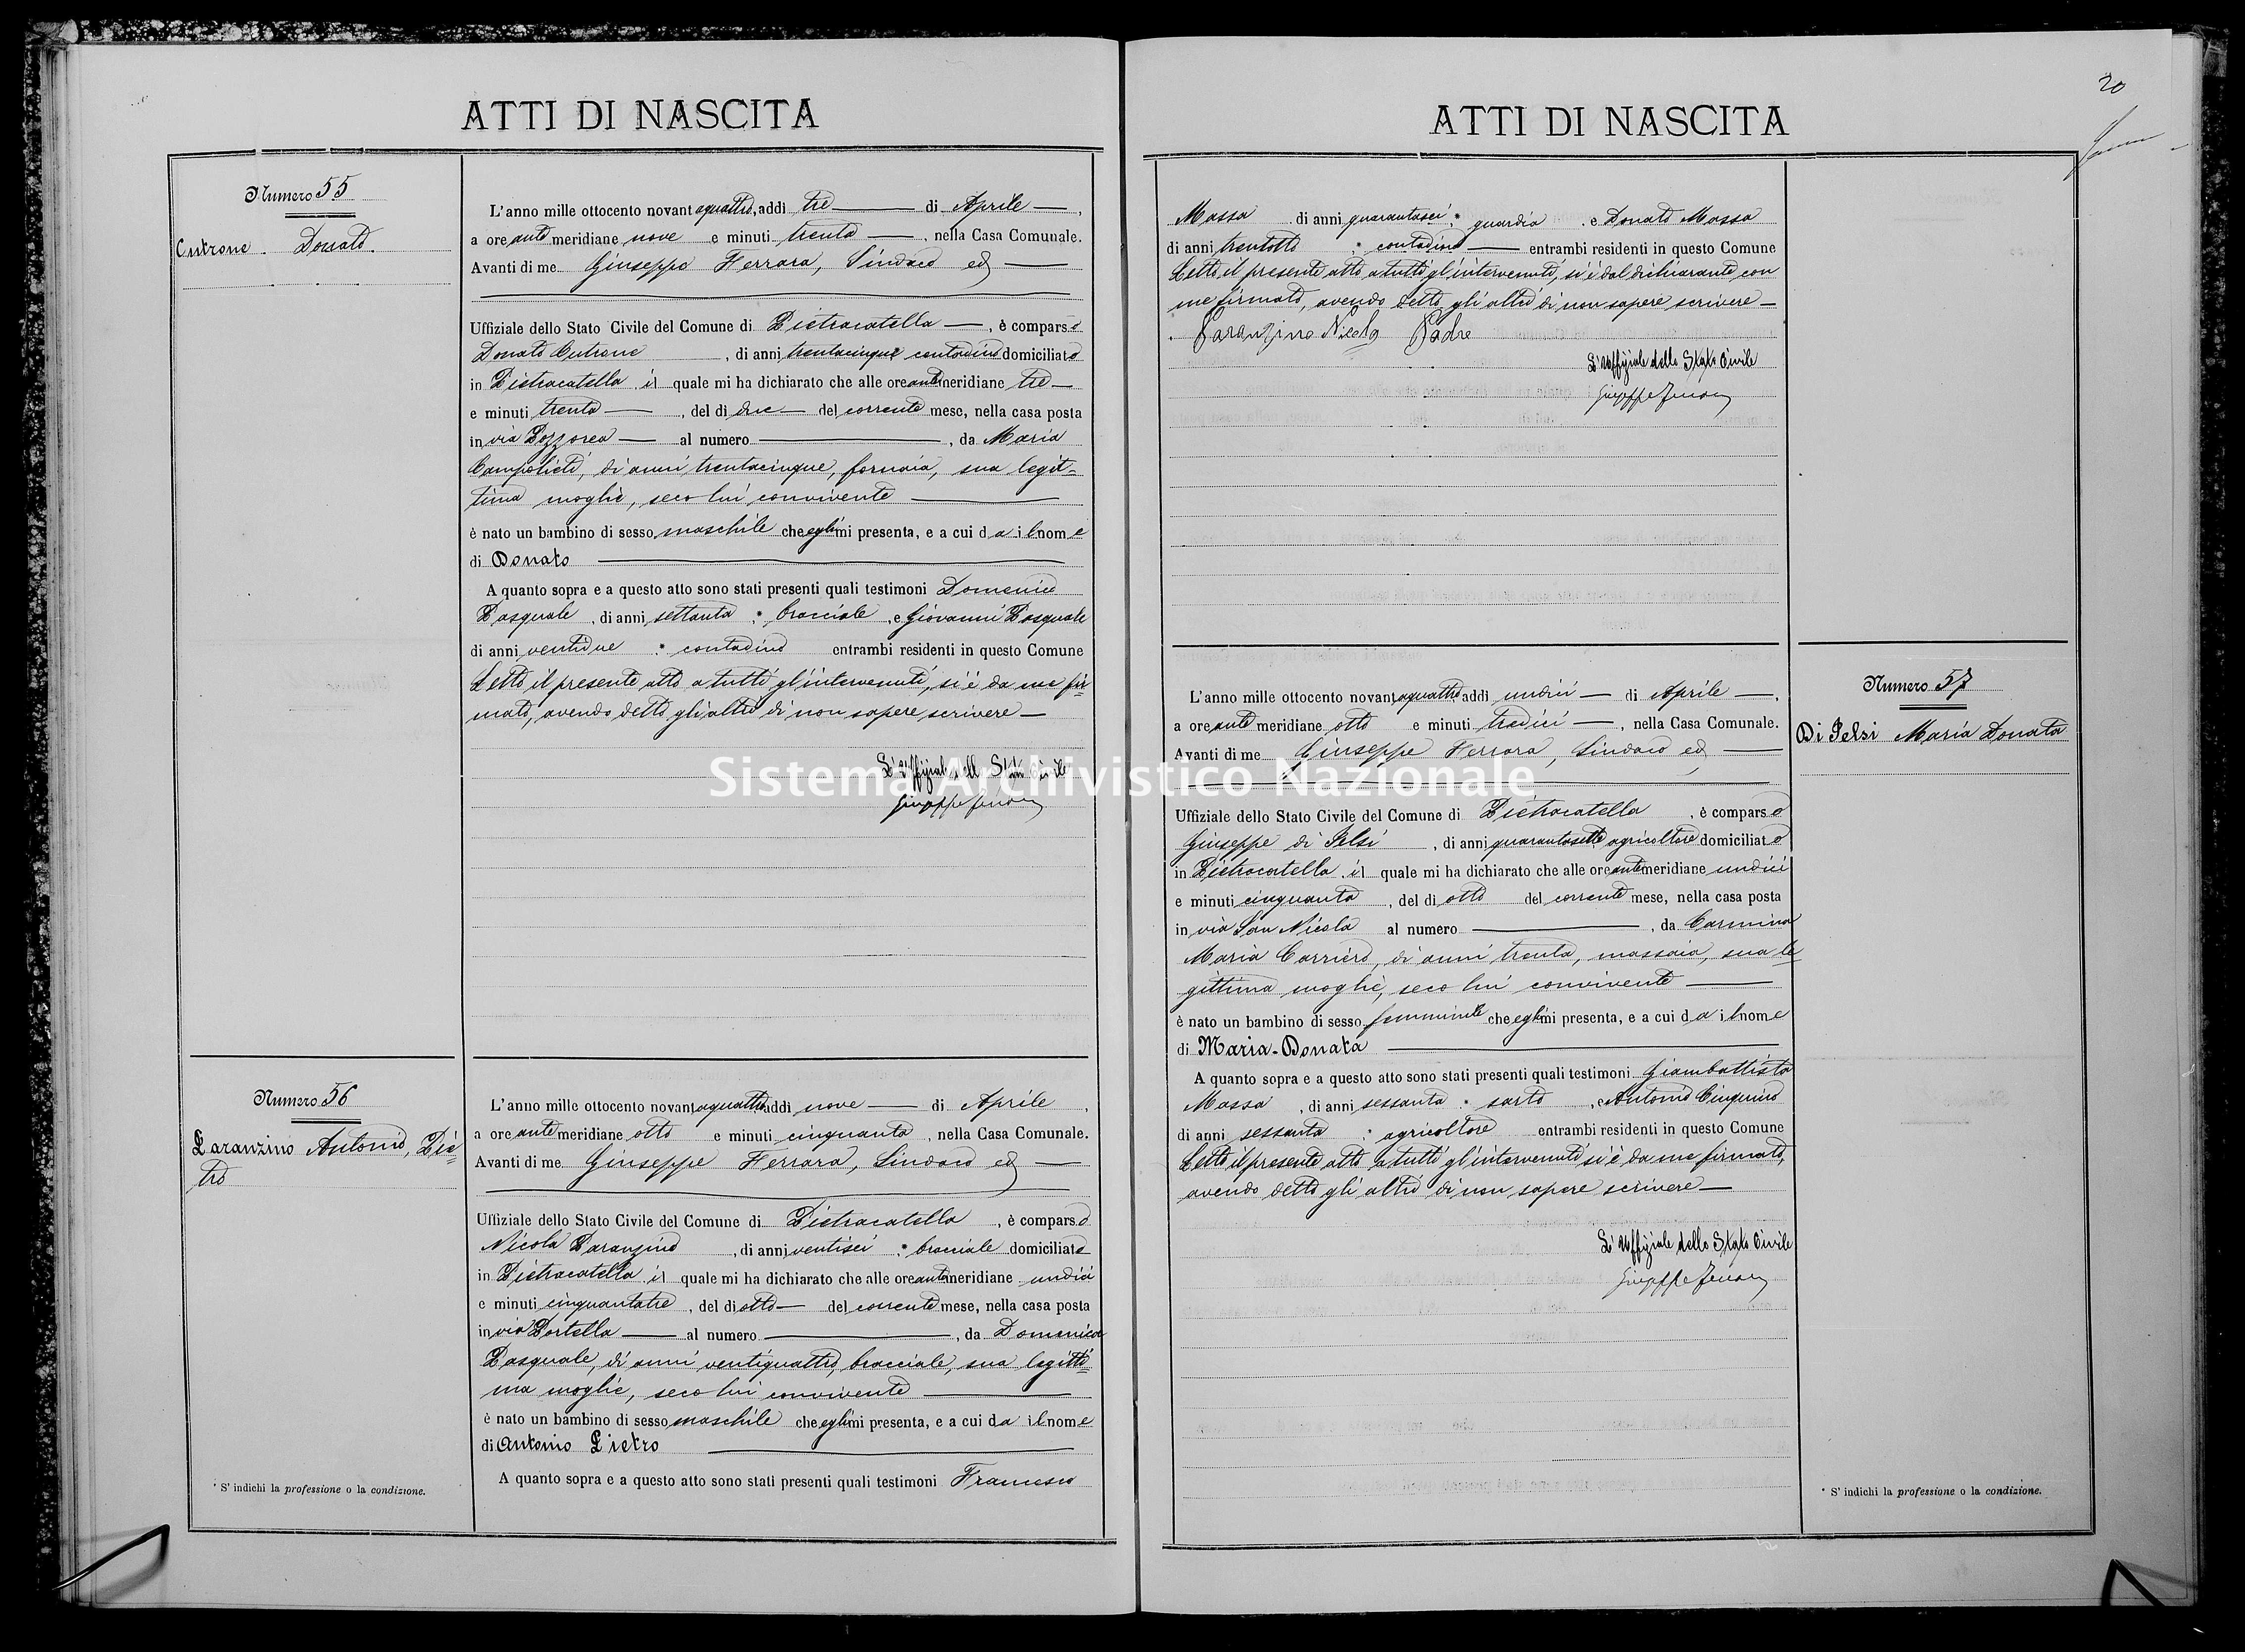 ATTI DI NASCITA
Numero 55
Cutrone Donato
L'anno mille ottocento novantaquattro, addì tre di Aprile,
a ore antemeridiane nove e minuti trenta, nella Casa Comunale.
Avanti di me Giuseppe Ferrara, Sindaco ed
Uffiziale dello Stato Civile del Comune di Pietracatella, è comparso
Donato Cutrone, di anni trentacinque contadino domiciliato
in Pietracatella, il quale mi ha dichiarato che alle ore antemeridiane tre
e minuti trenta, del dì due del corrente mese, nella casa posta
in via al numero, da Maria
Campolieti, di anni trentacinque, fornaia, sua legit=
tima moglie, seco lui convivente
è nato un bambino di sesso maschile che egli mi presenta, e a cui dà il nome
di Donato
A quanto sopra e a questo atto sono stati presenti quali testimoni Domenico
Pasquale, di anni settanta, * bracciale, e Giovanni Pasquale
di anni ventidue * contadino entrambi residenti in questo Comune
Letto il presente atto a tutti gl'intervenuti, si è da me fir=
mato, avendo detto gli altri di non sapere scrivere
L'Uffiziale dello Stato Civile
Giuseppe Ferrara
Numero 56
Paranzino Antonio, Pie=
tro
L'anno mille ottocento novantaquattro, addì nove di Aprile,
a ore antemeridiane otto e minuti cinquanta, nella Casa Comunale.
Avanti di me Giuseppe Ferrara, Sindaco ed
Uffiziale dello Stato Civile del Comune di Pietracatella, è comparso
Nicola Paranzino, di anni ventisei * bracciale domiciliato
in Pietracatella, il quale mi ha dichiarato che alle ore antemeridiane undici
e minuti cinquantatre, del dì otto del corrente mese, nella casa posta
in via Portella al numero, da Domenica
Pasquale, di anni ventiquattro, bracciale, sua legitti=
ma moglie, seco lui convivente
è nato un bambino di sesso maschile che egli mi presenta, e a cui dà il nome
di Antonio Pietro
A quanto sopra e a questo atto sono stati presenti quali testimoni Francesco
* S' indichi la professione o la condizione.
20
ATTI DI NASCITA
Massa di anni quarantasei * guardia, e Donato Massa
di anni trentotto * contadino entrambi residenti in questo Comune
Letto il presente atto a tutti gl'intervenuti, si è dal dichiarante con
me firmato, avendo detto gli altri di non sapere scrivere
Paranzino Nicola Padre
L'Uffiziale dello Stato Civile
Giuseppe Ferrara
Numero 57
Di Jelsi Maria Donata
L'anno mille ottocento novantaquattro, addì undici di Aprile,
a ore antemeridiane otto e minuti tredici, nella Casa Comunale.
Avanti di me Giuseppe Ferrara, Sindaco ed
Uffiziale dello Stato Civile del Comune di Pietracatella, è comparso
Giuseppe di Jelsi, di anni quarantasette agricoltore domiciliato
in Pietracatella, il quale mi ha dichiarato che alle ore antemeridiane undici
e minuti cinquanta, del dì otto del corrente mese, nella casa posta
in via San Nicola al numero, da Carmina
Maria Carriero, di anni trenta, massaia, sua le=
gittima moglie, seco lui convivente
è nato un bambino di sesso femminile che egli mi presenta, e a cui dà il nome
di Maria-Donata
A quanto sopra e a questo atto sono stati presenti quali testimoni Giambattista
Massa, di anni sessanta * sarto, e Antonio
di anni sessanta * agricoltore entrambi residenti in questo Comune
Letto il presente atto a tutti gl'intervenuti si è da me firmato,
avendo detto gli altri di non sapere scrivere
L'Uffiziale dello Stato Civile
Giuseppe Ferrara
* S' indichi la professione o la condizione.
Sistema Archivistico Nazionale